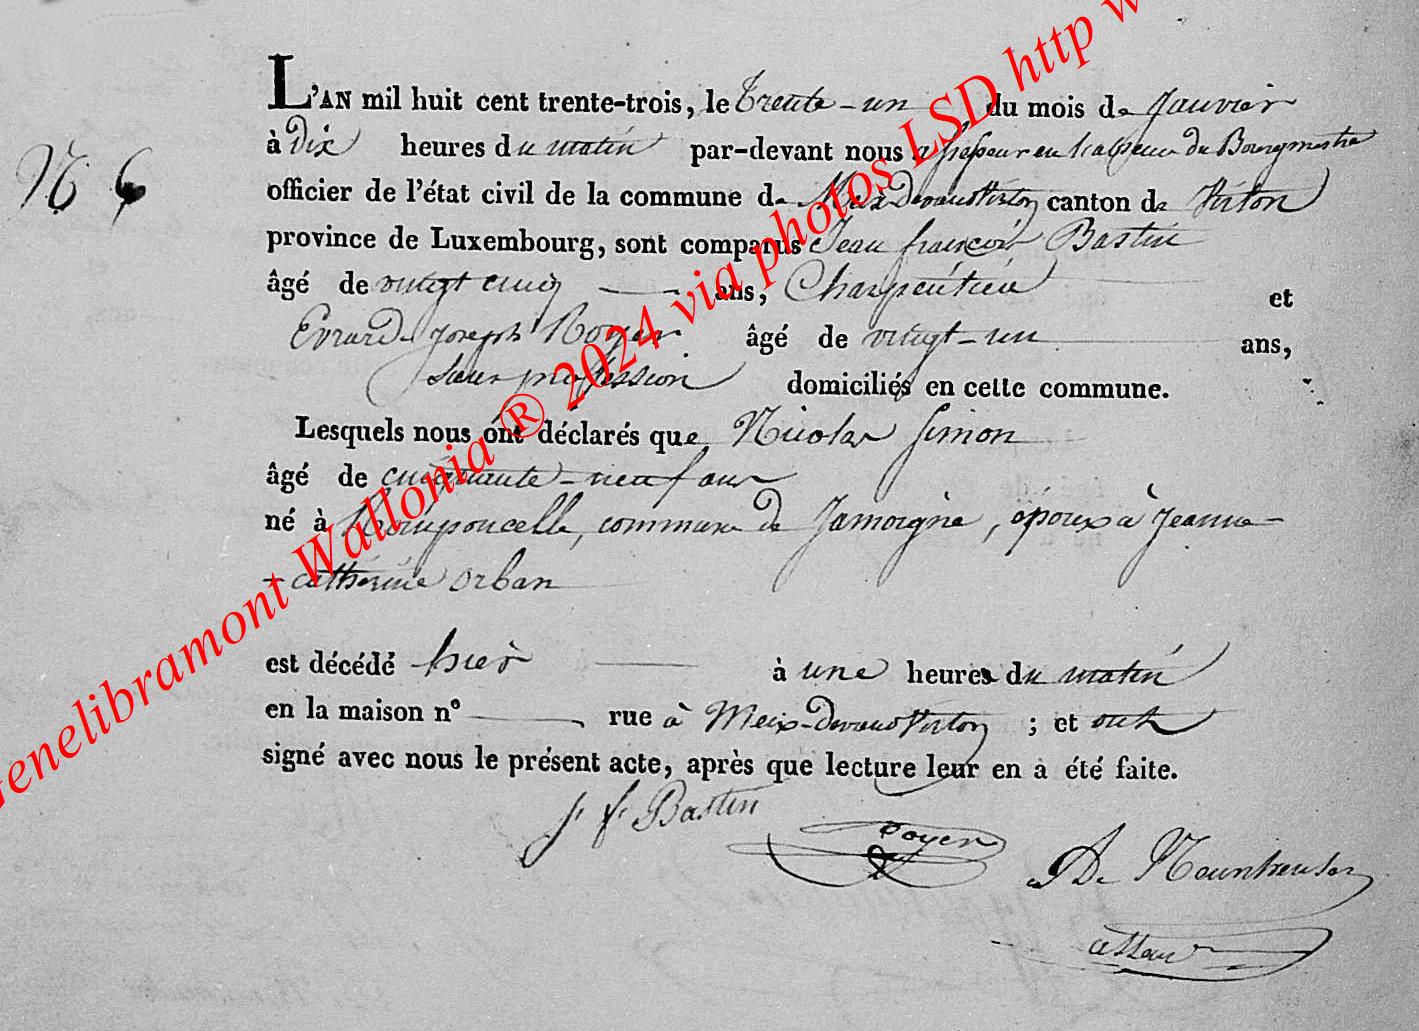 N. 6
L'AN mil huit cent trente-trois, le trente-un du mois de Janvier
à Dix heures du matin par-devant nous assesseur en l'absence du Bourgmestre
officier de l'état civil de la commune de Meix-Devant Virton canton de Virton
province de Luxembourg, sont comparus Jean françois Bastin
âgé de vingt cinq ans, Charpentier et
Evrard Joseph Royer âgé de vingt-un ans,
sans profession domiciliés en cette commune.
Lesquels nous ont déclarés que Nicolas Simon
âgé de cinquante-neuf ans
né à commune de Jamoigne, époux à Jeanne-
-catherine orban
est décédé hier à une heures du matin
en la maison n° rue à Meix-devant Virton ; et ont
signé avec nous le présent acte, après que lecture leur en a été faite.
J. f. Bastin
Royer
A. De
genelibramont Wallonia ® 2024 via photos LSD http w